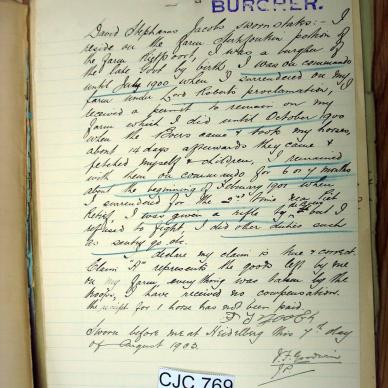 BURGHER.
David Stephanus Jacobs sworn states:- I
reside on the farm Sterkfontein portion of
the farm Rietpoort, I was a burgher of
the late Govt by birth. I was on commando
until July 1900 when I surrendered on my
farm under Lord Roberts proclamation, I
received a permit to remain on my
farm which I did until October 1900
when the Boers came & took my horses,
about 14 days afterwards they came &
fetched myself & children, I remained
with them on commando for 6 or 7 months
about the beginning of February 1901 when
I surrendered for the 2nd time near
Relief, I was given a rifle by but I
refused to fight, I did other duties such
as sentry go etc.
I declare my claim is true & correct.
Claim "A" represents the goods left by me
on my farm, everything was taken by the
troops, I have received no compensation.
the receipt for 1 horse has not been paid.
Sworn before me at Heidelberg this 7th day
of August 1903.
J.P.
CJC 769